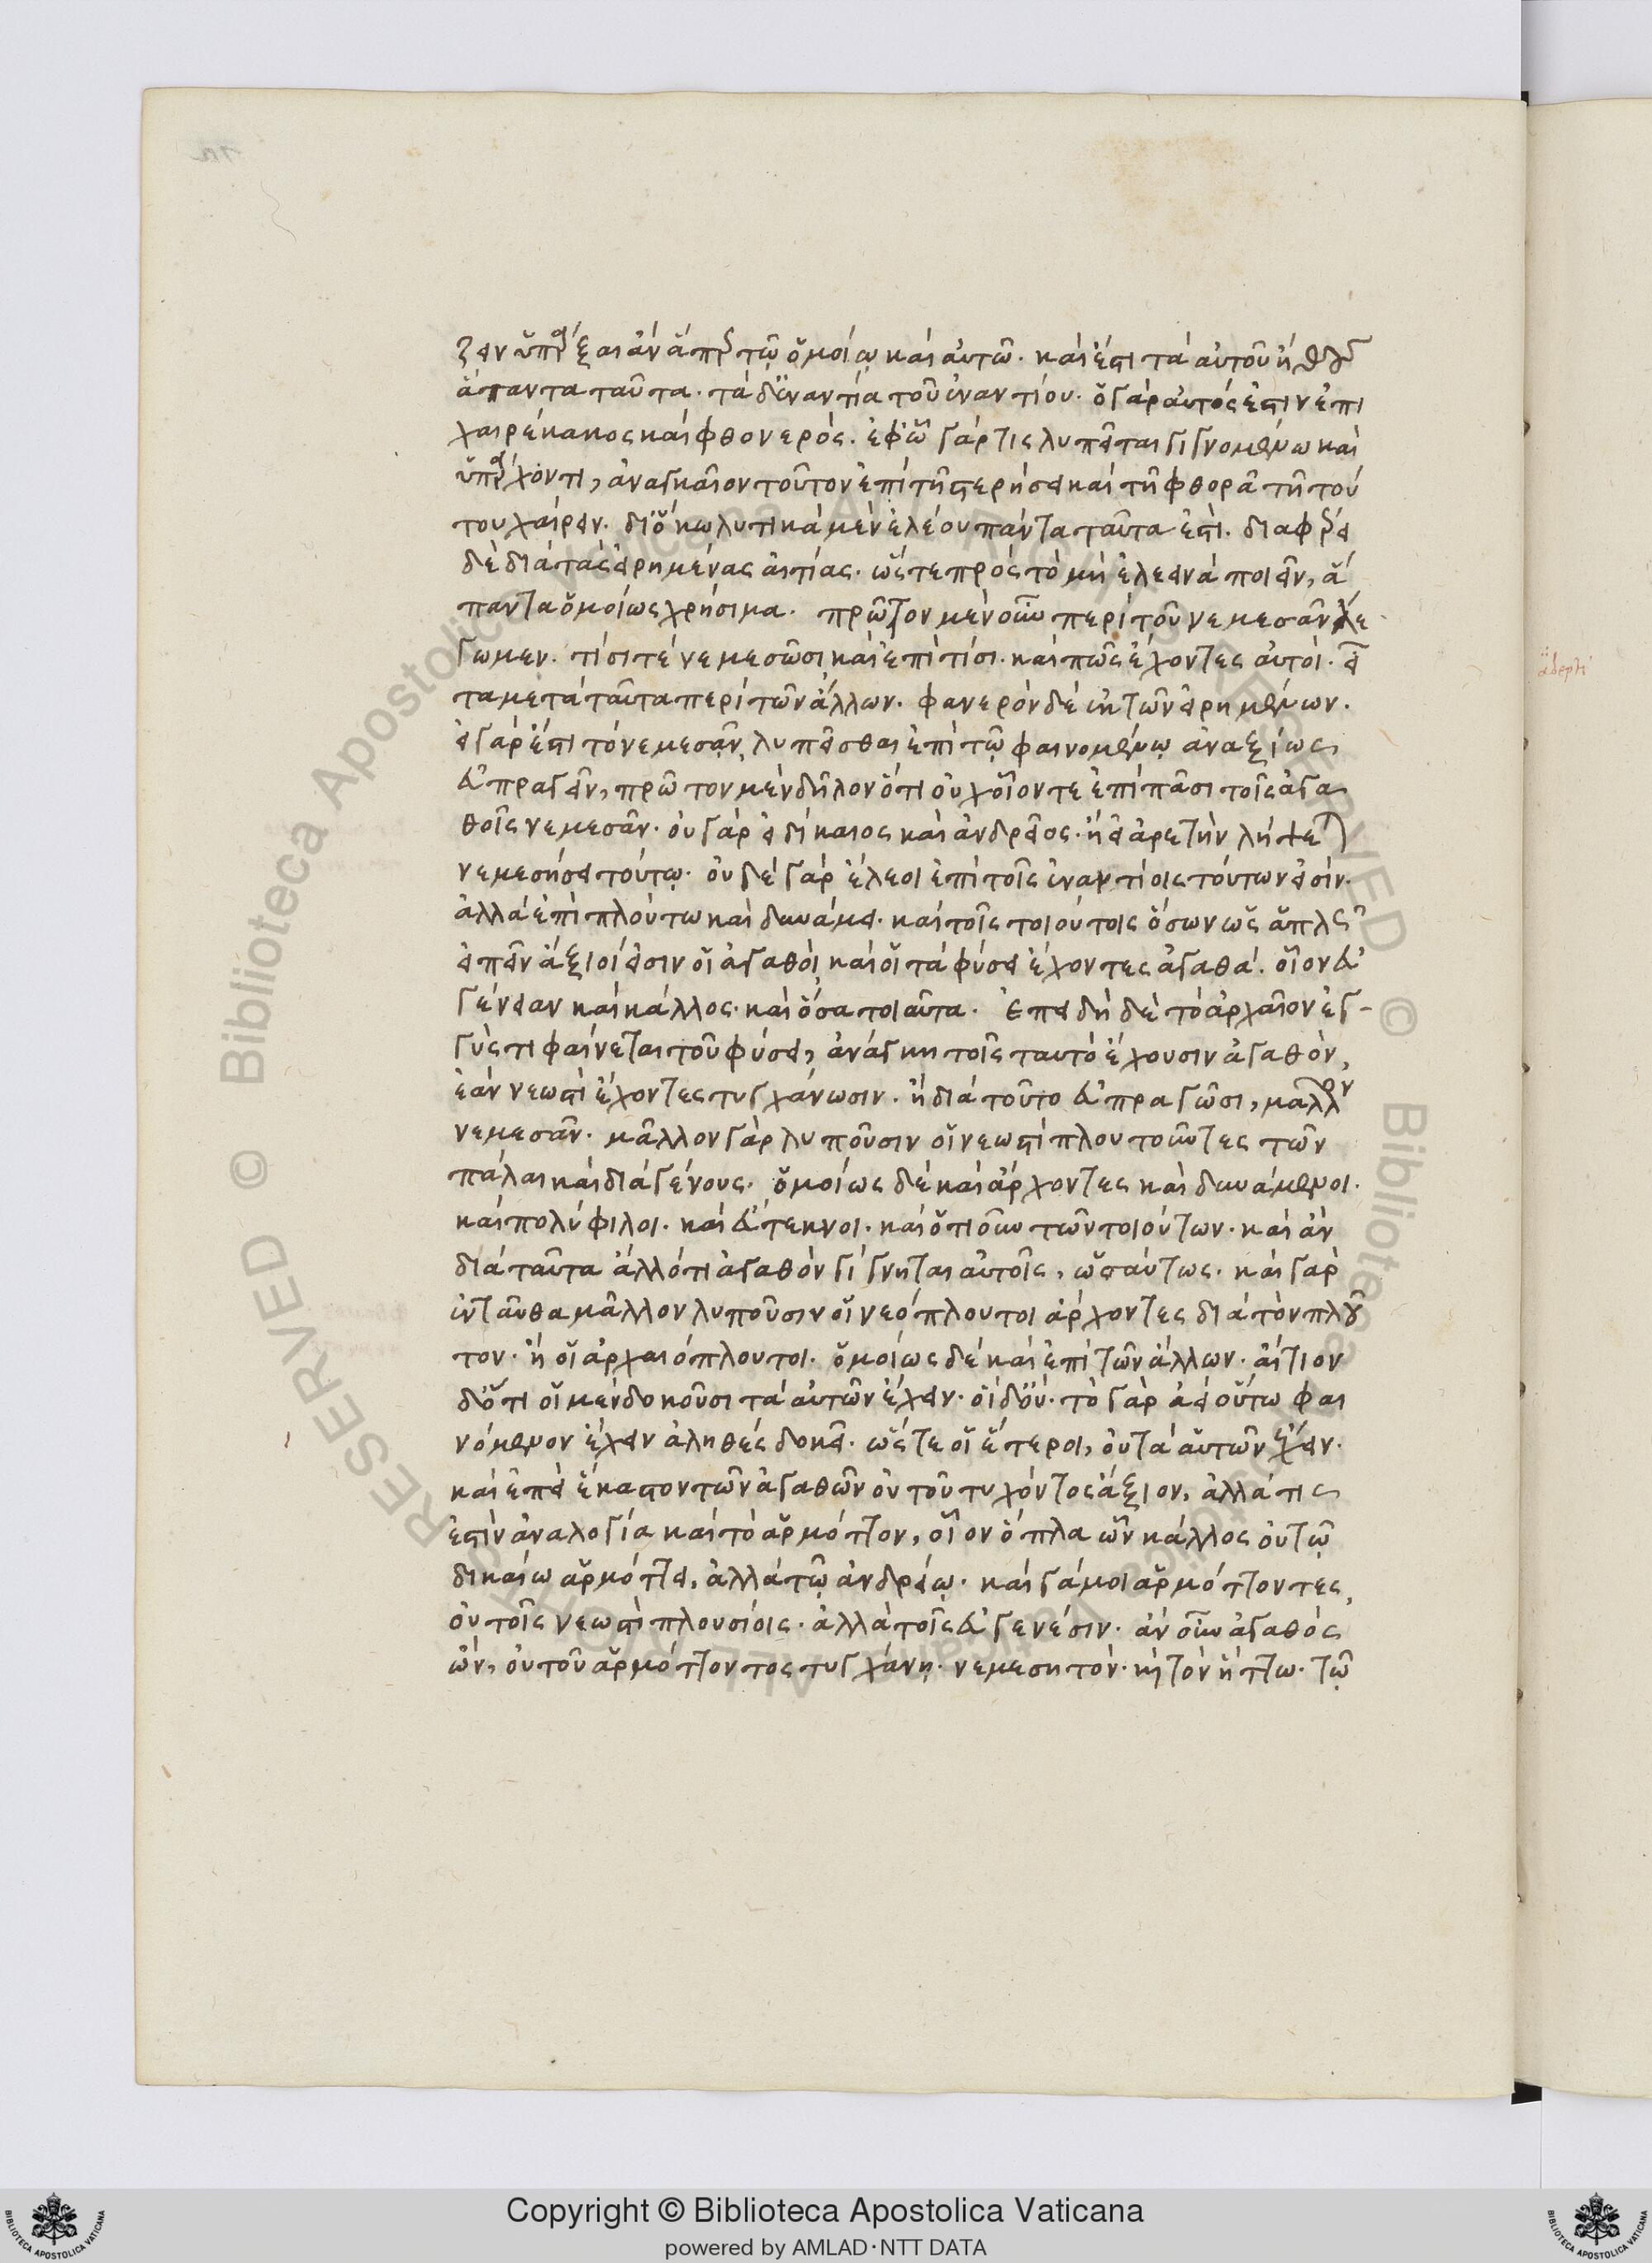 ζειν ὑπάρξαι ἂν ἅπερ τῷ ὁμοίῳ καὶ αὐτῶ. καὶ ἔστι τὰ αὐτοῦ ἤθους
ἅπαντα ταῦτα. τὰ δ' ἐναντία τοῦ ἐναντίου. ὁ γὰρ αὐτός ἐστιν ἐπι
χαιρέκακος καὶ φθονερός. ἐφ' ᾧ γάρ τις λυπεῖται γιγνομένω καὶ
ὑπάρχοντι, ἀναγκαῖον τοῦτον ἐπὶ τῇ στερήσει καὶ τῇ φθορᾷ τῇ τού
του χαίρειν. διὸ κωλυτικὰ μὲν ἐλέου πάντα ταῦτα ἐστί. διαφέρει
δὲ διὰ τὰς εἰρημένας αἰτίας. ὥστε πρὸς τὸ μὴ ἐλεεινὰ ποιεῖν, ἅ
παντα ὁμοίως χρήσιμα. πρῶτον μὲν οὖν περὶ τοῦ νεμεσᾶν λέ
γωμεν. τίσι τέ νεμεσῶσι καὶ ἐπὶ τίσι. καὶ πῶς ἔχοντες αὐτοί. εἶ
τα μετὰ ταῦτα περὶ τῶν ἄλλων. φανερὸν δὲ ἐκ τῶν εἰρημένων.
εἰ γάρ ἐστι τὸ νεμεσᾶν, λυπεῖσθαι ἐπὶ τῷ φαινομένῳ ἀναξίως
εὐπραγεῖν, πρῶτον μὲν δῆλον ὅτι οὐχ οἷόν τε ἐπὶ πᾶσι τοῖς ἀγα
θοῖς νεμεσᾶν. οὐ γὰρ εἰ δίκαιος καὶ ἀνδρεῖος. ἢ εἰ ἀρετὴν λήψεται
νεμεσήσει τούτῳ. οὐδὲ γὰρ ἔλεοι ἐπὶ τοῖς ἐναντίοις τούτων εἰσίν.
ἀλλὰ ἐπὶ πλούτω καὶ δυνάμει. καὶ τοῖς τοιούτοις ὅσων ὡς ἁπλῶς
εἰπεῖν ἄξιοί εἰσιν οἱ ἀγαθοί, καὶ οἱ τὰ φύσει ἔχοντες ἀγαθά. οἷον εὐ
γένειαν καὶ κάλλος. καὶ ὅσα τοιαῦτα. ἐπειδὴ δὲ τὸ ἀρχαῖον ἐγ-
γύς τι φαίνεται τοῦ φύσει, ἀνάγκη τοῖς ταυτὸ ἔχουσιν ἀγαθόν,
ἐὰν νεωστὶ ἔχοντες τυγχάνωσιν. ἢ διὰ τοῦτο εὐπραγῶσι, μᾶλλον
νεμεσᾶν. μᾶλλον γὰρ λυποῦσιν οἱ νεωστὶ πλουτοῦντες τῶν
πάλαι καὶ διὰ γένους. ὁμοίως δὲ καὶ ἄρχοντες καὶ δυνάμενοι.
καὶ πολύφιλοι. καὶ εὔτεκνοι. καὶ ὅτι οὖν τῶν τοιούτων. καὶ ἂν
διὰ ταῦτα ἄλλό τι ἀγαθὸν γίγνηται αὐτοῖς, ὡσαύτως. καὶ γὰρ
ἐνταῦθα μᾶλλον λυποῦσιν οἱ νεόπλουτοι ἄρχοντες διὰ τὸν πλοῦ
τον. ἢ οἱ ἀρχαιόπλουτοι. ὁμοίως δὲ καὶ ἐπὶ τῶν ἄλλων. αἴτιον
δ' ὅτι οἱ μὲν δοκοῦσι τὰ αὐτῶν ἔχειν. οἱ δ' οὔ. τὸ γὰρ ἀεὶ οὕτω φαι
νόμενον ἔχειν ἀληθές δοκεῖ. ὥστε οἱ ἕτεροι, οὐ τὰ αὑτῶν ἔχειν.
καὶ ἐπεὶ ἕκαστον τῶν ἀγαθῶν οὐ τοῦ τυχόντος ἄξιον, ἀλλά τις
ἐστὶν ἀναλογία καὶ τὸ ἁρμόττον, οἷον ὅπλων κάλλος οὐ τῷ
δικαίω ἁρμόττει, ἀλλὰ τῷ ἀνδρείῳ. καὶ γάμοι ἁρμόττοντες,
οὐ τοῖς νεωστὶ πλουσίοις. ἀλλὰ τοῖς εὐγενέσιν. ἂν οὖν ἀγαθὸς
ὤν, οὐ τοῦ ἁρμόττοντος τυγχάνη. νεμεσητόν. κἢ τὸν ἥττω. τῷ